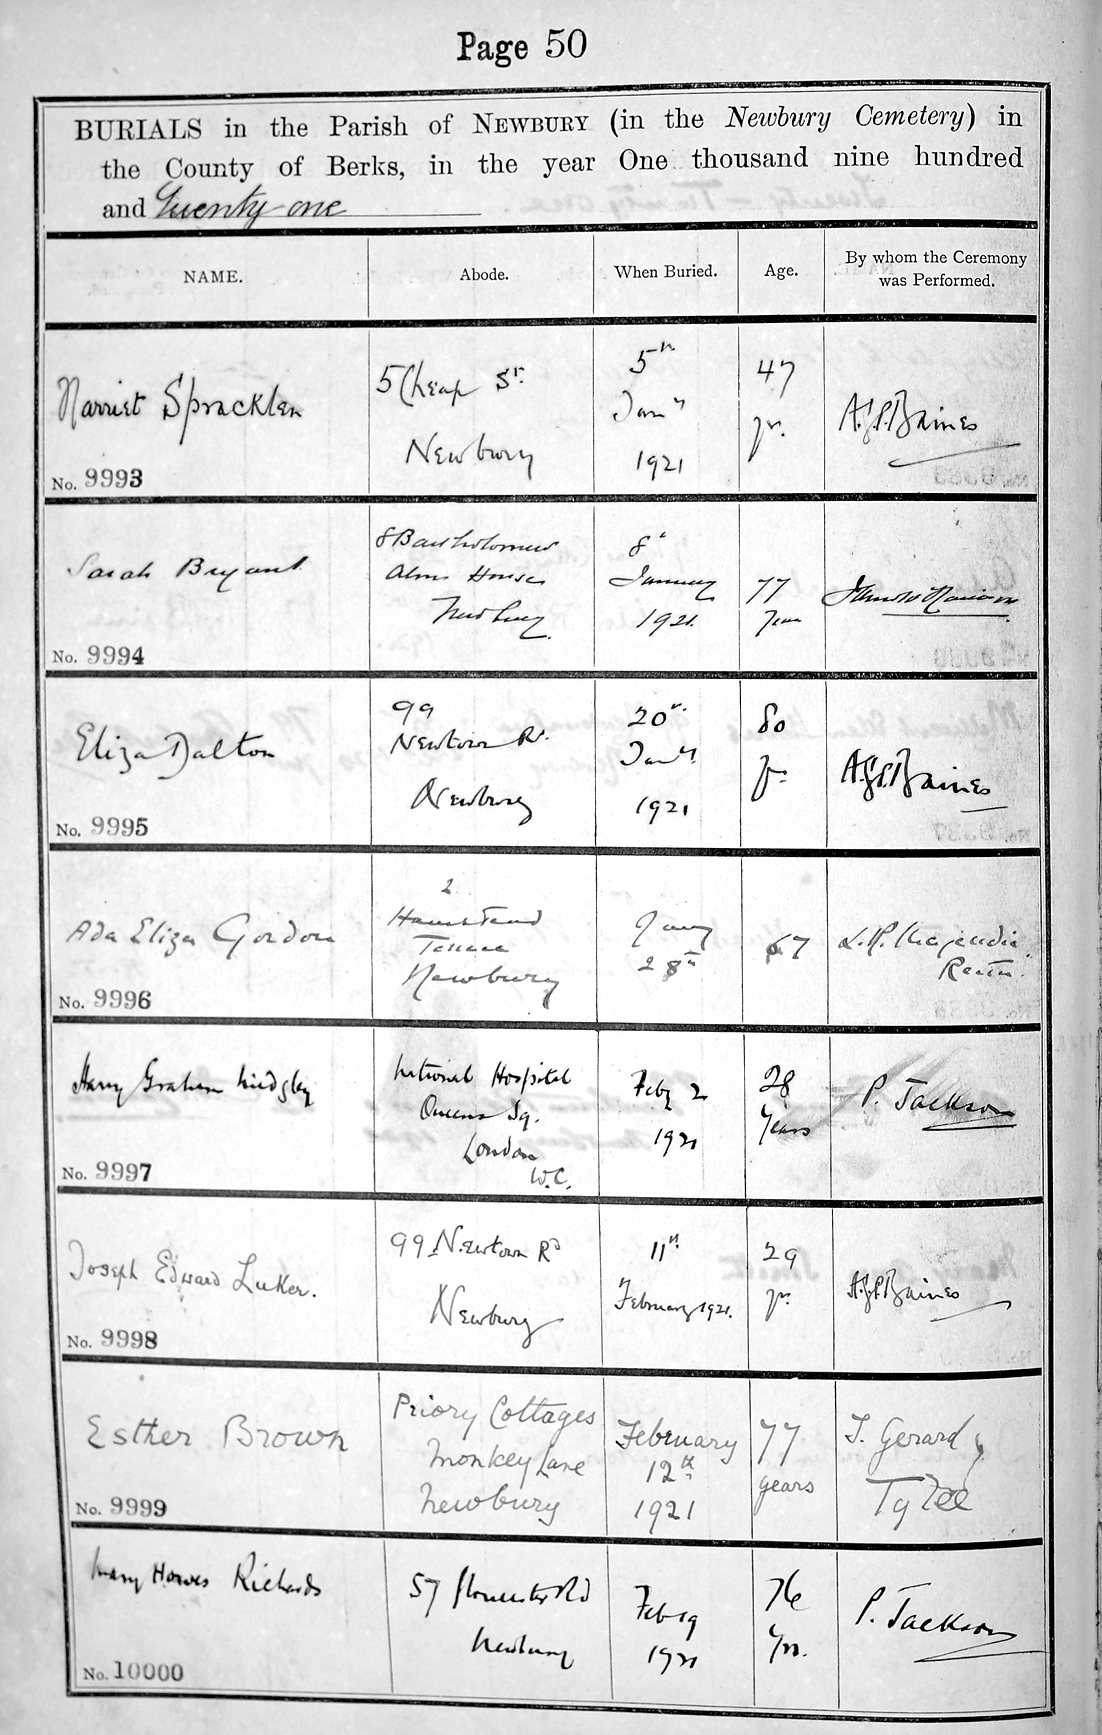 Page 50
BURIALS in the Parish of NEWBURY (in the Newbury Cemetery) in
the County of Berks, in the year One thousand nine hundred
and Twenty-one
NAME.
Abode.
When Buried.
Age.
By whom the Ceremony
was Performed.
Harriet Spracklen
No. 9993
5 Cheap St.
Newbury
5th
Jany
1921
47
yr.
A.G.P. Baines
Sarah Bryant
No. 9994
8 Bartholomew
Alms Houses
Newbury
8th
January
1921.
77
Years
Eliza Dalton
No. 9995
99
Newtown Rd.
Newbury
20th
Jany.
1921
80
yr.
A.G.P. Baines
Ada Eliza Gordon
No. 9996
2
Hamstead
Terrace
Newbury
Jany
28th
67
L.R. Majendie
Rector.
Harry Graham Midgley
No. 9997
National Hospital
Queens Sq.
London
W.C.
Feby 2
1921
28
Years
P. Jackson
Joseph Edward Luker.
No. 9998
99 Newtown Rd
Newbury
11th
February 1921.
29
yr.
A.G.P. Baines
Esther Brown
No. 9999
Priory Cottages
Monkey Lane
Newbury
February
12th
1921
77
years
T. Gerard
Tylee
Mary Howes Richards
No. 10000
57 Gloucester Rd
Newbury
Feb 19
1921
76
Yrs.
P. Jackson